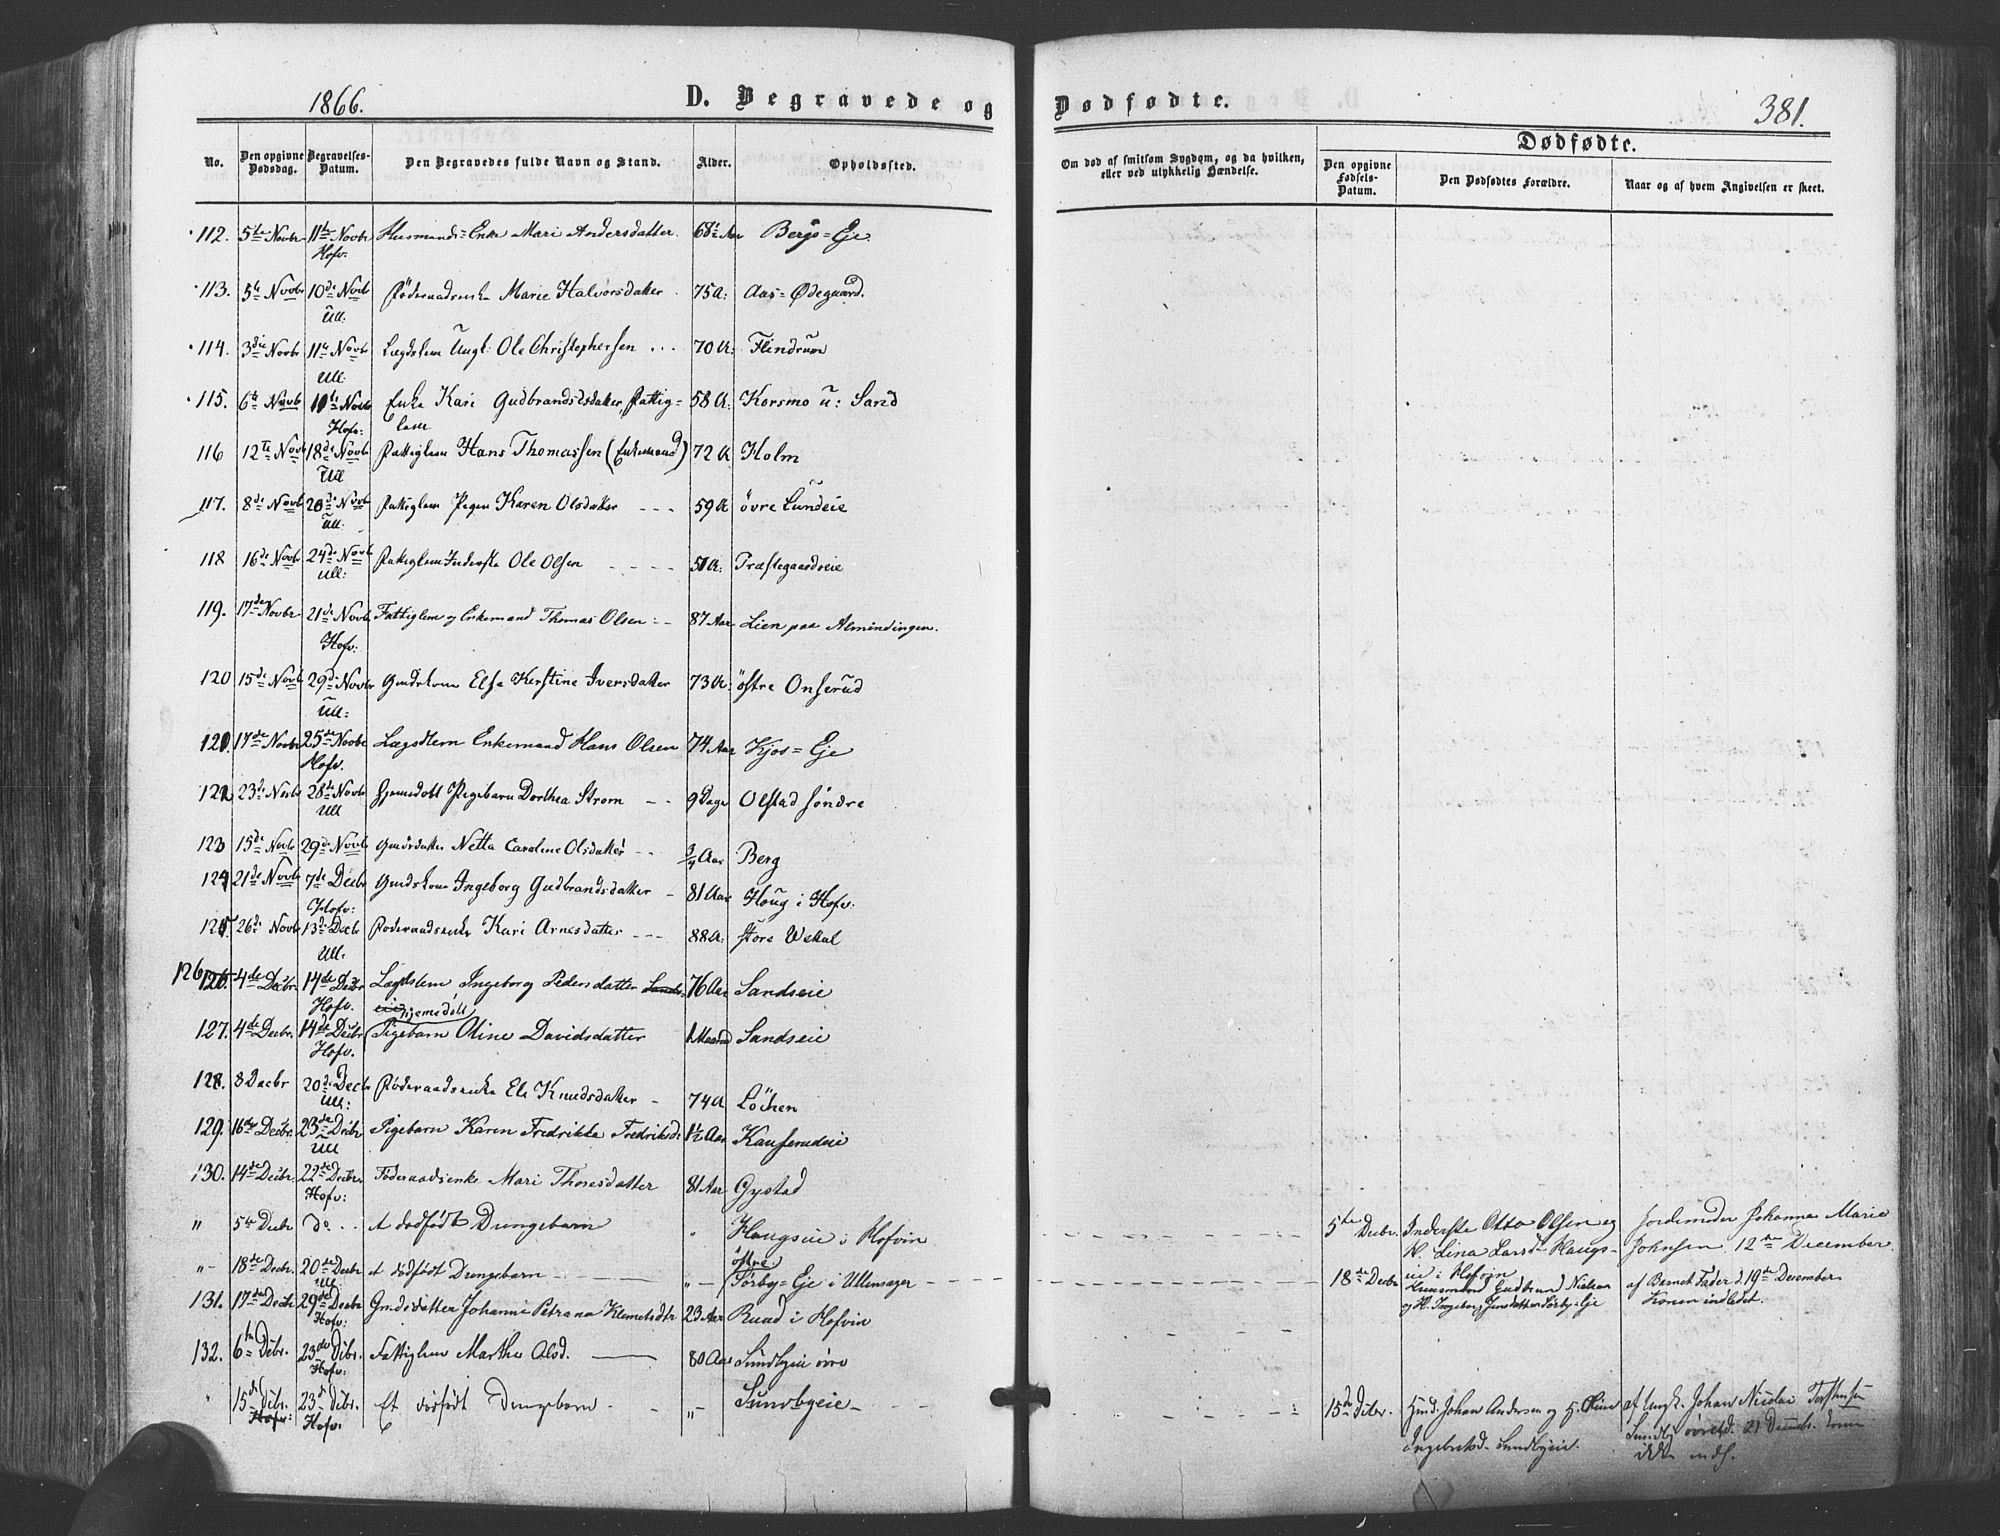 1866.
D. Begravede og
Dødfødte.
381.
Dødfødte.
No.
Den opgivne Dødsdag.
Begravelses-Datum.
Den Begravedes fulde Navn og Stand.
Alder.
Opholdssted.
Om død af smitsom Sygdom, og da hvilken, eller ved ulykkelig Hændelse.
Den opgivne Fødsels-Datum.
Den Dødfødtes Forældre.
Naar og af hvem Angivelsen er skeet.
112. 5te Novbr 11te Novbr Husmands=Enke Mari Andersdatter 68½ Aar Bergs=Eje
Hofv.
113. 5te Novbr 10de Novb Føderaadsenke Marie Halvorsdatter 75 A: Aas=Ødegaard.
Ull:
114. 3die Novbr 11te Novb Lægdslem Ungk: Ole Christophersen 70 A: Flindrum
Ull.
115. 6te Novbr 10de Novb Enke Kari Gudbrandsdatter, Fattig= 58 A: Korsmo u: Sand
Hofv: lem
116 12te Novb 18de Novb Fattiglem Hans Thomassen (Enkemand) 72 A Holm
Ull
117. 8de Novb 20de Novb Fattiglem Pigen Karen Olsdatter 59 A øvre Lundeie
Ull:
118 16de Novb 24de Novb Fattiglem Inderste Ole Olsen 51 A: Præstegaardseie
Ull:
119. 17de Novbr 21de Novb Fattiglem og Enkemand Thomas Olsen 87 Aar Lien paa Almindingen.
Hofv:
120 15de Novb 29de Novbr Gaardskone Else Kirstine Iversdatter 73 A: østre Onserud
Ull:
121. 17de Novbr 25de Novbr Lægdslem Enkemand Hans Olsen 74 Aar Kjos=Eje
Hofv.
122 23de Novb 28de Novb Hjemedøbt Pigebarn Dorthea Strøm 9 Dage Olstad søndre
Ull
123 15de Novb 29de Novb Gaardsdatter Netta Caroline Olsdatter ¾ Aar Berg
124 21de Novb 7de Decbr Gaardskone Ingeborg Gudbrandsdatter 81 Aar Houg i Hofv:
Hofv:
125 26de Novb 13de Decbr Føderaadsenke Kari Arnesdatter 88 A: store Wekal
Ull.
126 4de Decbr. 14de Decbr Lægdslem Ingeborg Pedersdatter 76 Aar Sandseie
Hofv. hjemedøbt
127. 4de Decbr. 14de Decbr Pigebarn Oline Davidsdatter 1 Maaned Sandseie
Hofv.
128. 8 Decbr 20de Decb Føderaadsenke Eli Knudsdatter 74 A Löchen
Ull:
129. 16de Decbr. 23de Decbr Pigebarn Karen Fredrikke Fredriksd: 1½ Aar Kauserudeie
Ull
130. 14de Decbr. 22de Decbr. Føderaadsenke Mari Thoresdatter 81 Aar Gystad
Hofv:
" 5te Decbr do et dødfødt Drengebarn " Haugseie i Hofvin
5te Decbr. Inderste Otto Olsen og H. Lina Larsd. Haugs-eie i Hofvin
Jordemoder Johanna Marie Johnsen, 12te December
" 18de Decbr. 20de Decbr et dødfødt Drengebarn " østre Sørby=Eje i Ullensager
Ull
18de Decbr Huusmand Gudbrand Nielsen og H. Ingeborg Jensdatter Sørby=Eje
af Barnets Fader d. 19de December. Konen indledet.
131. 17de Decbr 29de Decbr Gaardsdatter Johanne Petrana Klemetsdtr 23 Aar Ruud i Hofvin
Hofv:
132. 6te Dcbr. 23de Dcbr. Fattiglem Marthe Olsd. 80 Aar Sundbyeie øvre
Hofv.
" 15de Dcbr. 23de Dcbr. Et dødfødt Drengebarn " Sundbyeie
Hofv: Hofv.
15de Dcbr. Huusm. Johan Andersen og H.
Ingebretsd. Sundbyeie.
af Ungk. Johan Nicolai
Sundby øvre d. 21 Decembr. Konen
ikke indl.